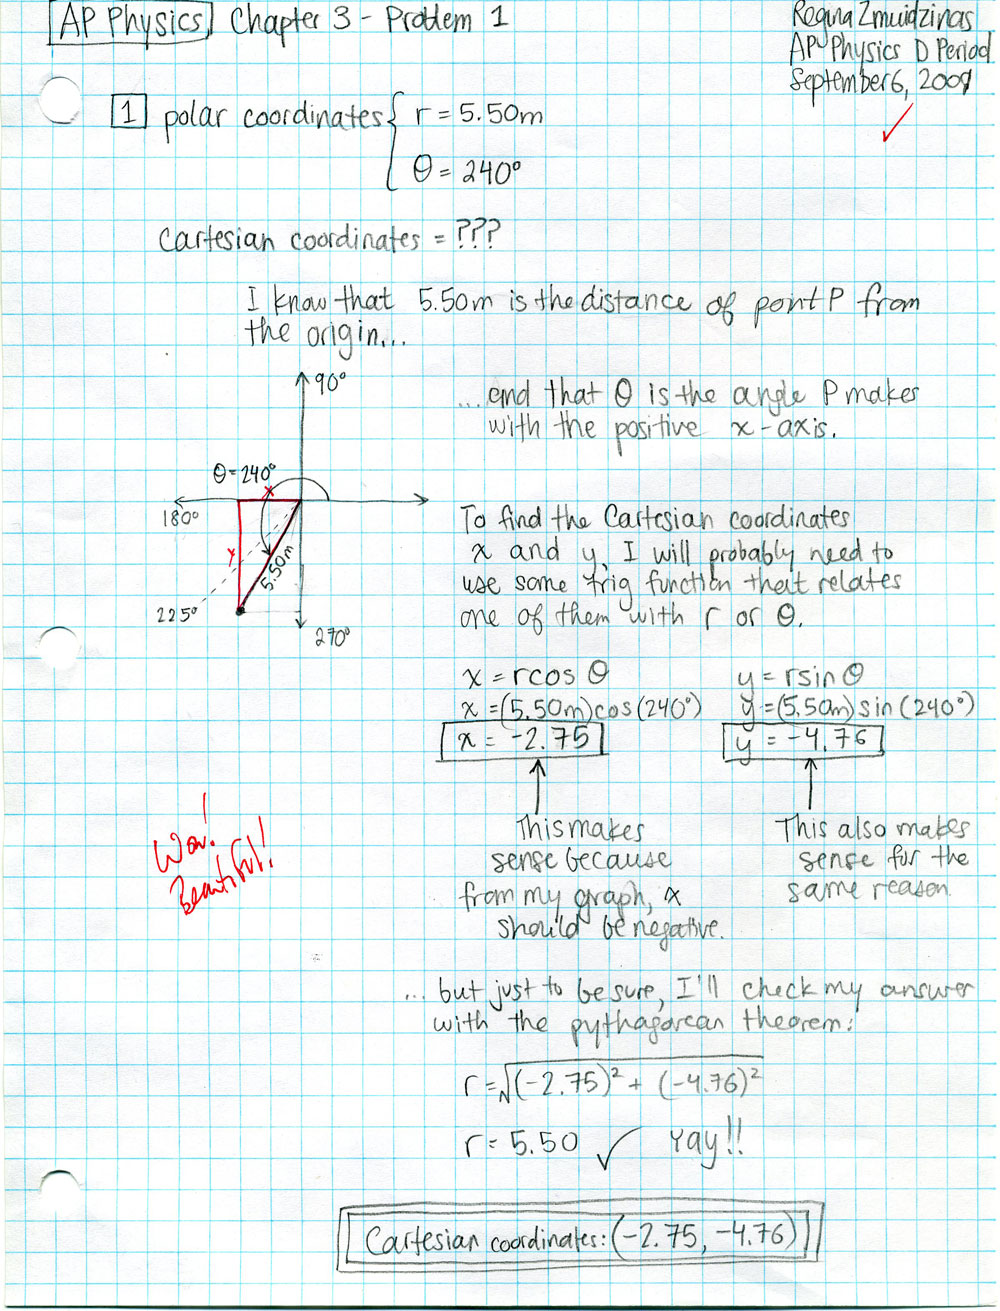 AP Physics Chapter 3 - Problem 1
Regina Zmuidzinas
AP Physics D Period
September 6, 2009
1 polar coordinates { r = 5.50m
θ = 240°
Cartesian coordinates = ???
I know that 5.50m is the distance of point P from
the origin...
90°
...and that θ is the angle P makes
with the positive x-axis.
θ = 240°
x
180°
x
5.50m
225°
270°
To find the Cartesian coordinates
x and y, I will probably need to
use some trig function that relates
one of them with r or θ.
x = rcos θ
x = (5.50m)cos(240°)
x = -2.75
y = rsin θ
y = (5.50m)sin(240°)
y = -4.76
This makes
sense because
from my graph, x
should be negative.
This also makes
sense for the
same reason.
Wow!
Beautiful!
... but just to be sure, I'll check my answer
with the pythagorean theorem:
r = √(-2.75)² + (-4.76)²
r = 5.50 ✓ Yay!!
Cartesian coordinates: (-2.75, -4.76)